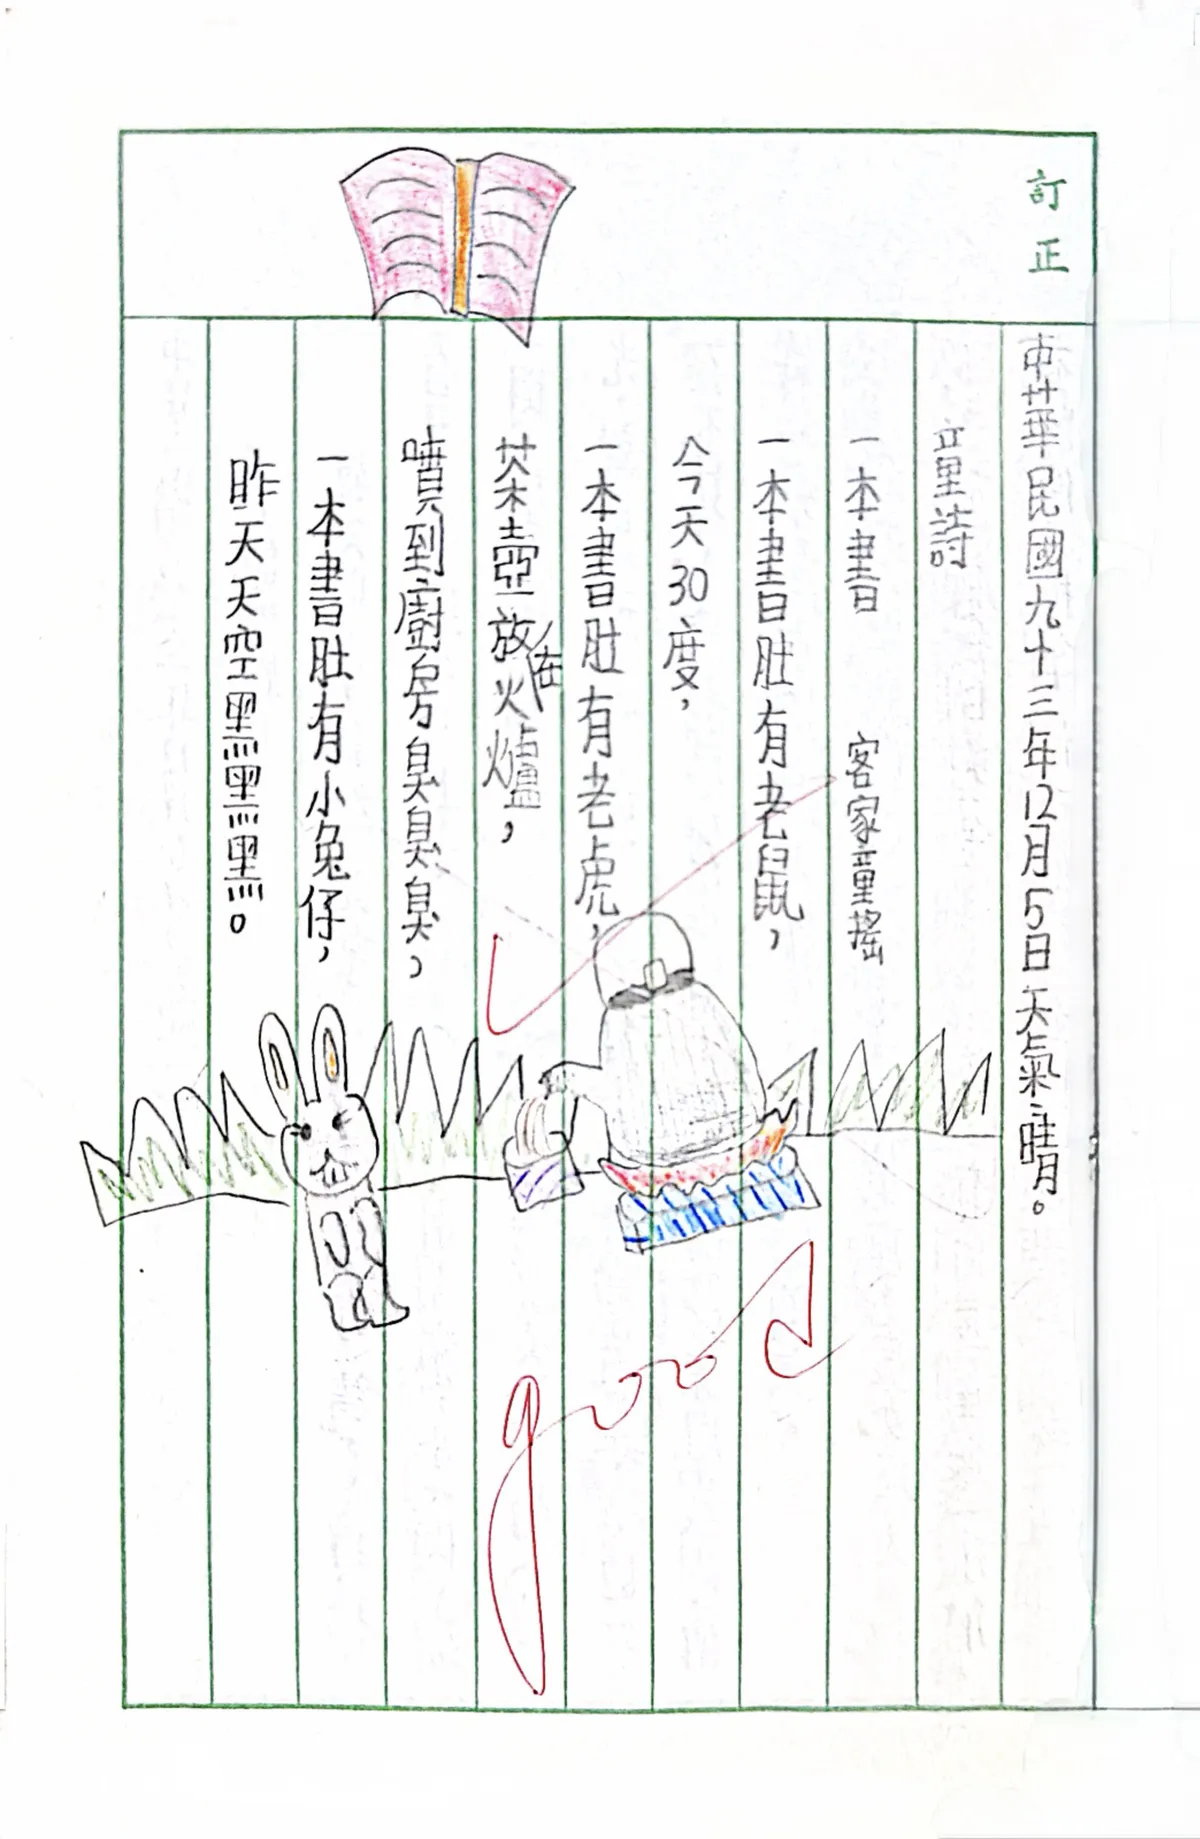 訂正
中華民國九十三年12月5日天氣晴。
童詩
一本書 客家童搖
一本書肚有老鼠，
今天30度，
一本書肚有老虎，
茶壺放在火爐，
噴到廚房臭臭臭，
一本書肚有小兔仔，
昨天天空黑黑黑。
good